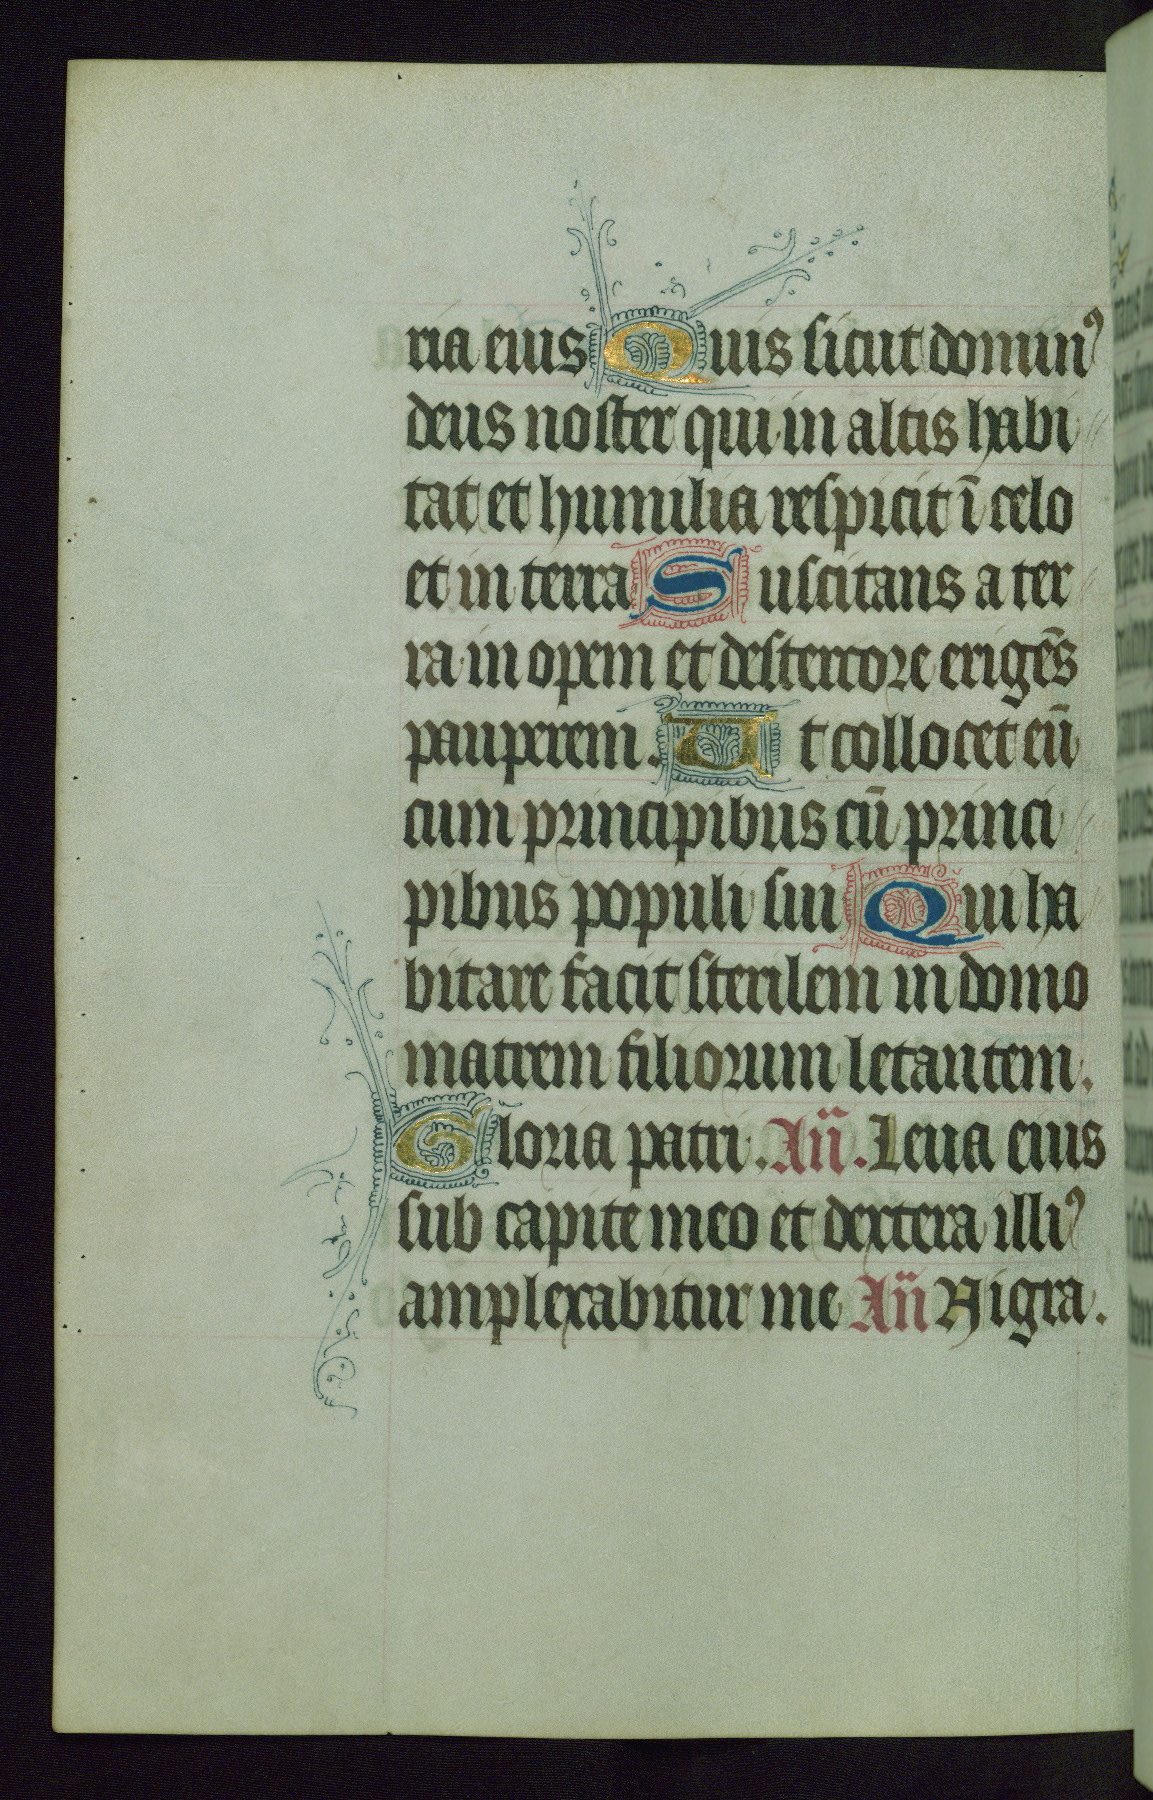 ria eius Quis sicut domin⁹
deus noster qui in altis habi
tat et humilia respicit ī celo
et in terra Suscitans a ter
ra in opem et de stercore erigēs
pauperem. Ut collocet eū
cum principibus cū princi
pibus populi sui Qui ha
bitare facit sterilem in domo
matrem filiorum letantem.
Gloria patri. An̄. Leua eius
sub capite meo et dextera illi⁹
amplexabitur me An̄ Nigra.